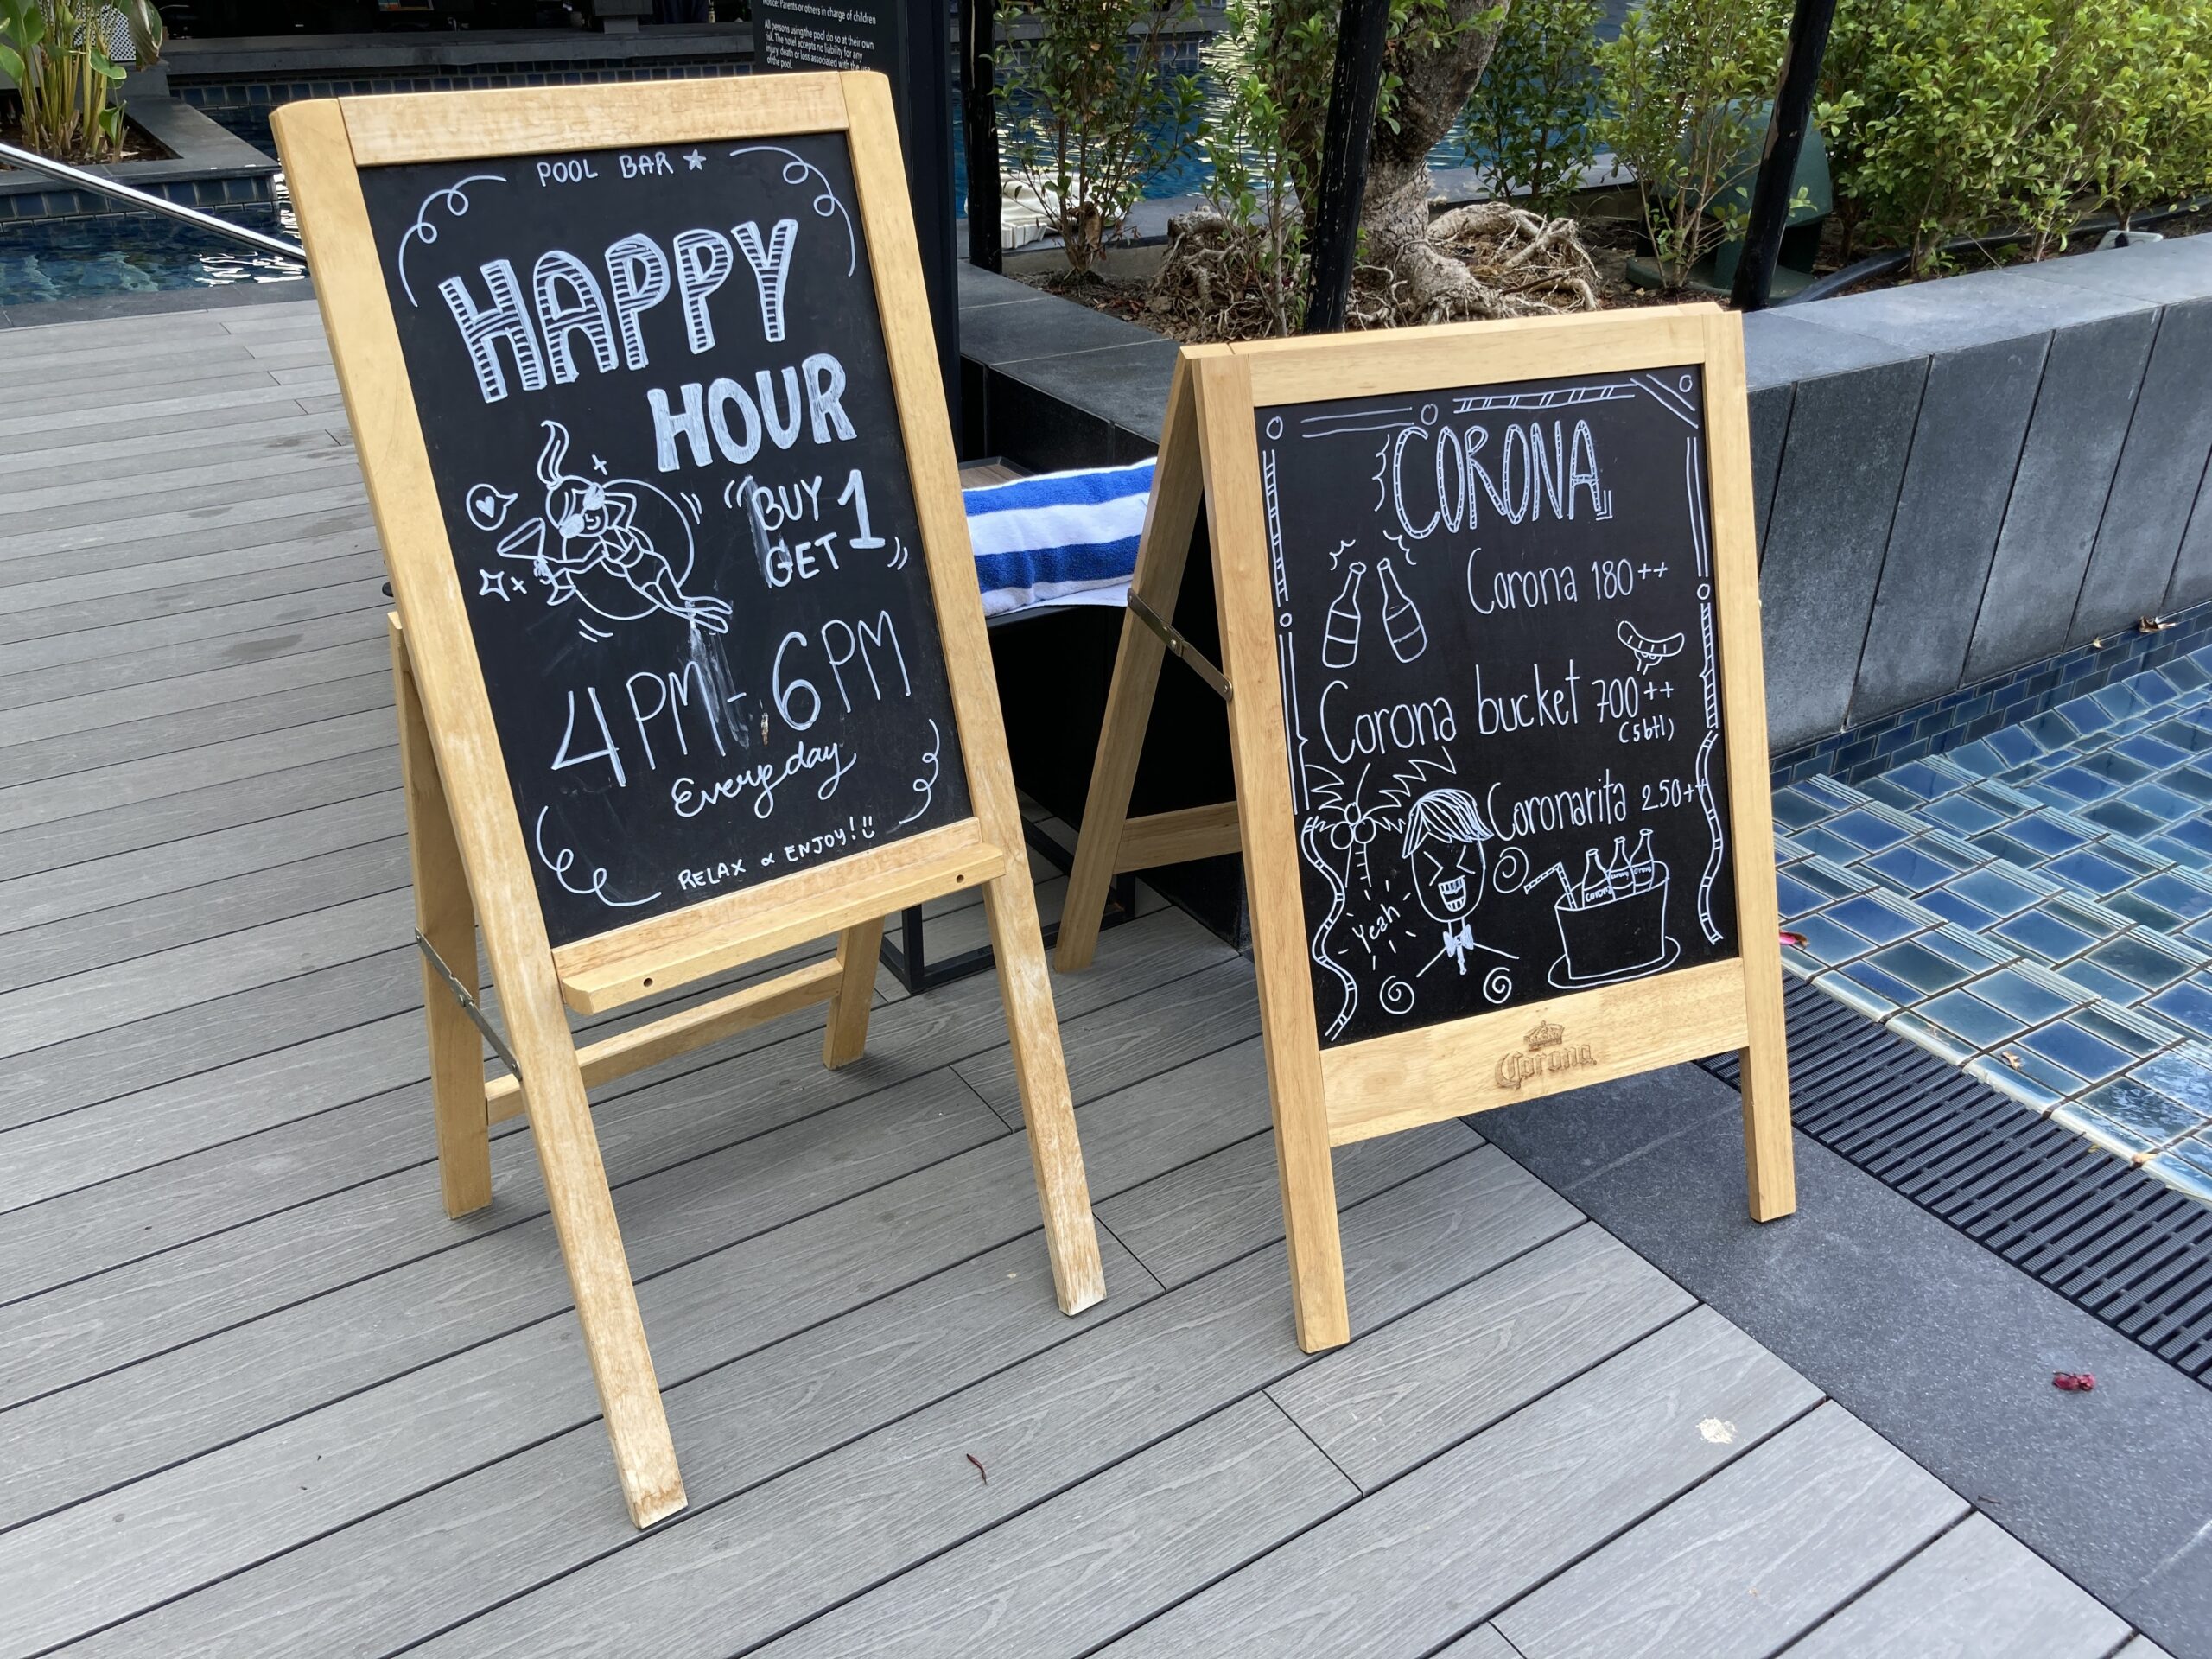 Notice: Parents or others in charge of children
All persons using the pool do so at their own
risk. The hotel accepts no liability for any
injury, death or loss associated with the use
of the pool.
POOL BAR
HAPPY
HOUR
"BUY 1
GET 1"
4PM - 6PM
Everyday
RELAX & ENJOY!
CORONA
Corona 180++
Corona bucket 700++
(5btl)
Coronarita 250++
Yeah
Corona